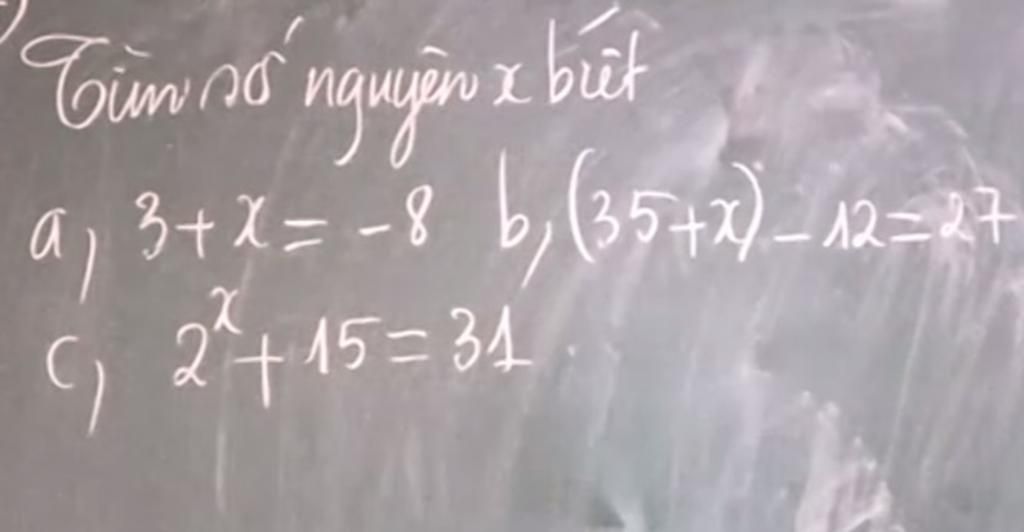 Tìm số nguyên x biết
a, 3 + x = -8 b, (35+x) - 12 = 27
c, 2^x + 15 = 31